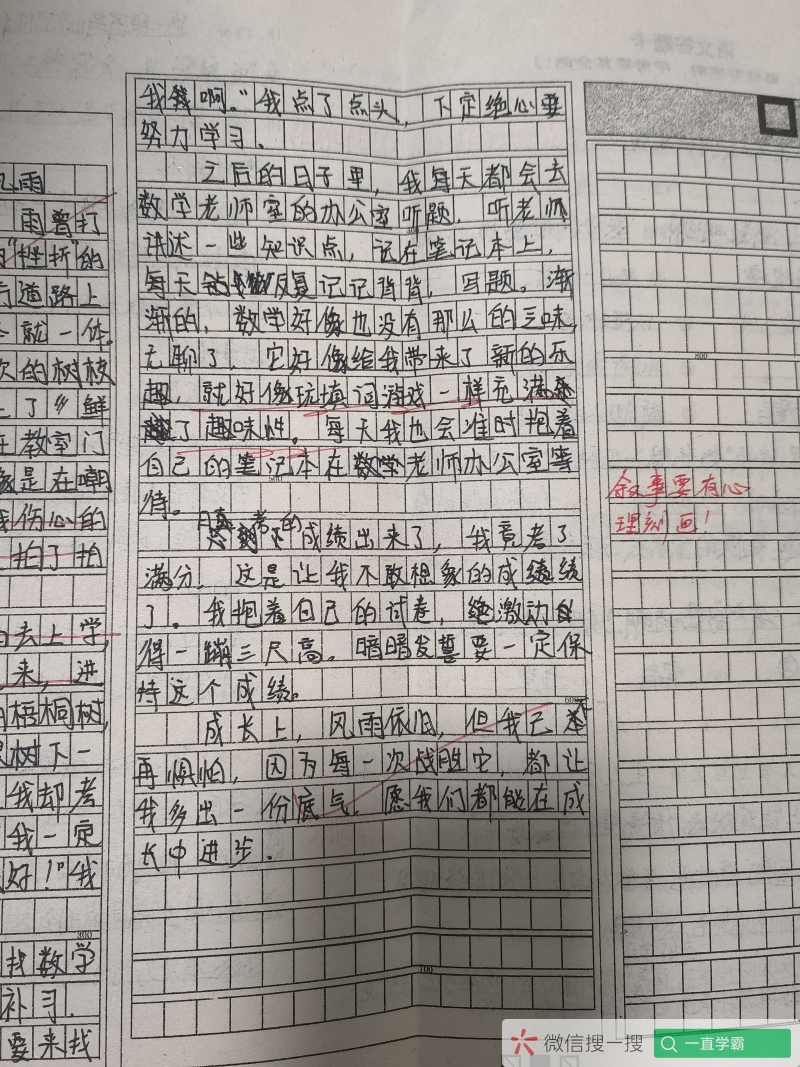 风雨
雨曾打
"挫折"的
道路上
就一体。
次的树枝
了《鲜
在教室门
象是在嘲
我伤心的
拍了拍
去上学,
来,进
梧桐树,
树下一
我却考
我一定
好!"我
300
找数学
补习.
要来找
我钱啊。"我点了点头,下定绝心要
努力学习.
之后的日子里,我每天都会去
数学老师室的办公室听题.听老师
讲述一些知识点,记在笔记本上,
每天反复记记背背,写题。渐
渐的,数学好像也没有那么的乏味,
无聊了,它好像给我带来了新的乐
趣,就好像玩填词游戏一样充满
了趣味性。每天我也会准时抱着
自己的笔记本在数学老师办公室等
500
待。
月真考的
成绩出来了,我竟考了
满分,这是让我不敢想象的成绩绩
了。我抱着自己的试卷,激动
得一蹦三尺高。暗暗发誓要一定保
持这个成绩。
600
成长上,风雨依旧,但我已不
再惧怕,因为每一次战胜它,都让
我多出一份底气.愿我们都能在成
长中进步.
700
语文答题卡
800
叙事要有心
理刻画!
微信搜一搜
一直学霸